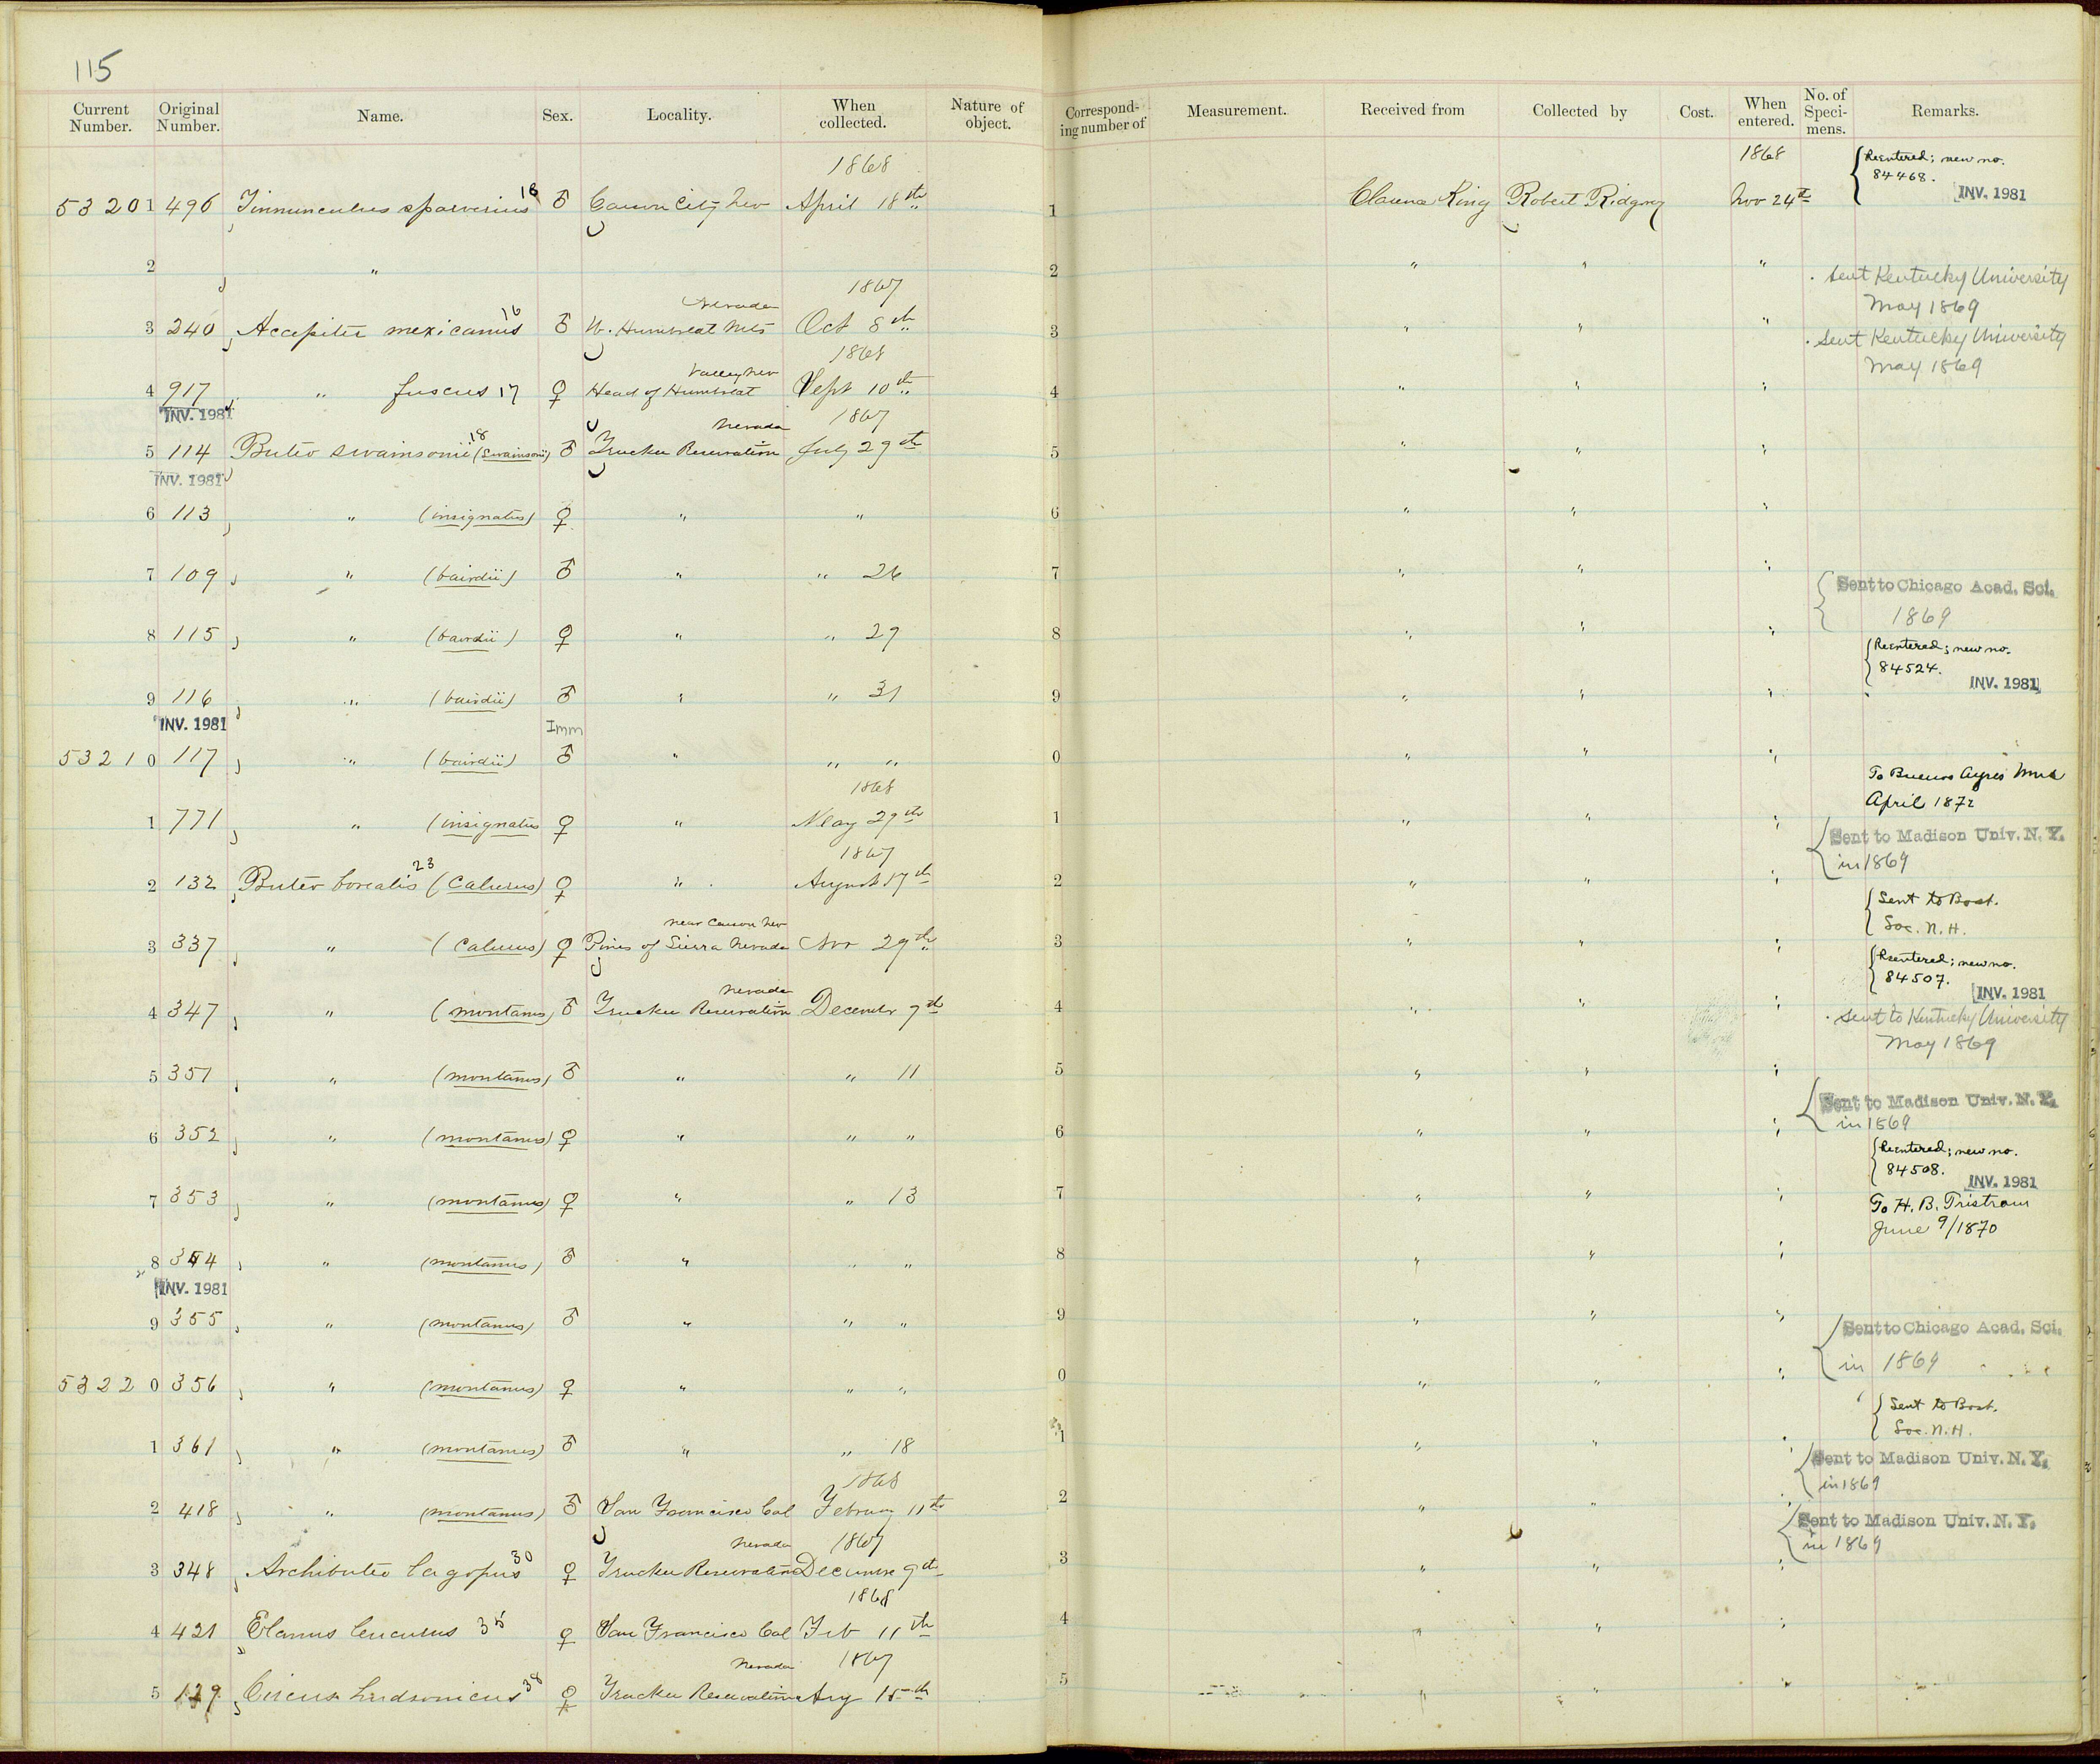 115
Current Number. Original Number. Name. Sex. Locality. When collected. Nature of object. Corresponding number of Measurement. Received from Collected by Cost. When entered. No. of Specimens. Remarks.
1868 1868 Reentered; new no.
84468.
53201 496 Tinnunculus sparverius 18 ♂ Carson City Nev April 18th 1 Clarence King Robert Ridgway Nov 24th INV. 1981
2 " 2 " " " Sent Kentucky University
May 1869
Nevada 1867
3 240 Accipiter mexicanus 16 ♂ W. Humboldt Mts Oct 8th 3 " " " Sent Kentucky University
May 1869
Valley Nev 1868
4 917 " fuscus 17 ♀ Head of Humboldt Sept 10th 4 " " "
INV. 1981
Nevada 1867
5 114 Buteo swainsonii 18 (Swainsoni) ♂ Truckee Reservation July 29th 5 " " "
INV. 1981
6 113 " (insignatus) ♀ " " 6 " " "
7 109 " (bairdii) ♂ " " 26 7 " " " Sent to Chicago Acad. Sci.
1869
8 115 " (bairdii) ♀ " " 29 8 " " " Reentered; new no.
84524.
INV. 1981
9 116 " (bairdii) ♂ " " 31 9 " " "
INV. 1981 Imm
53210 117 " (bairdii) ♂ " " " 0 " " " To Buenos Ayres Mus
April 1872
1868
1 771 " (insignatus ♀ " May 29th 1 " " " Sent to Madison Univ. N. Y.
in 1869
1867
2 132 Buteo borealis 23 (Calurus) ♀ " August 17th 2 " " " Sent to Bost.
Soc. N. H.
near Carson Nev
3 337 " (Calurus) ♀ Pines of Sierra Nevada Nov 29th 3 " " " Reentered; new no.
84507.
INV. 1981
Nevada
4 347 " (montanus) ♂ Truckee Reservation December 9th 4 " " " Sent to Kentucky University
May 1869
5 351 " (montanus) ♂ " " 11 5 " " " Sent to Madison Univ. N. Y.
in 1869
6 352 " (montanus) ♀ " " " 6 " " " Reentered; new no.
84508.
INV. 1981
7 353 " (montanus) ♀ " " 13 7 " " " To H. B. Tristram
June 9/1870
8 354 " (montanus) ♂ " " " 8 " " "
INV. 1981
9 355 " (montanus) ♂ " " " 9 " " " Sent to Chicago Acad. Sci.
in 1869
53220 356 " (montanus) ♀ " " " 0 " " " Sent to Bost.
Soc. N. H.
1 361 " (montanus) ♂ " " 18 1 " " " Sent to Madison Univ. N. Y.
in 1869
1868
2 418 " (montanus) ♂ San Francisco Cal February 11th 2 " " " Sent to Madison Univ. N. Y.
in 1869
Nevada 1867
3 348 Archibuteo lagopus 30 ♀ Truckee Reservation December 9th 3 " " "
1868
4 421 Elanus leucurus 35 ♀ San Francisco Cal Feb 11th 4 " " "
Nevada 1867
5 129 Circus hudsonicus 38 ♀ Truckee Reservation Aug 15th 5 " " "